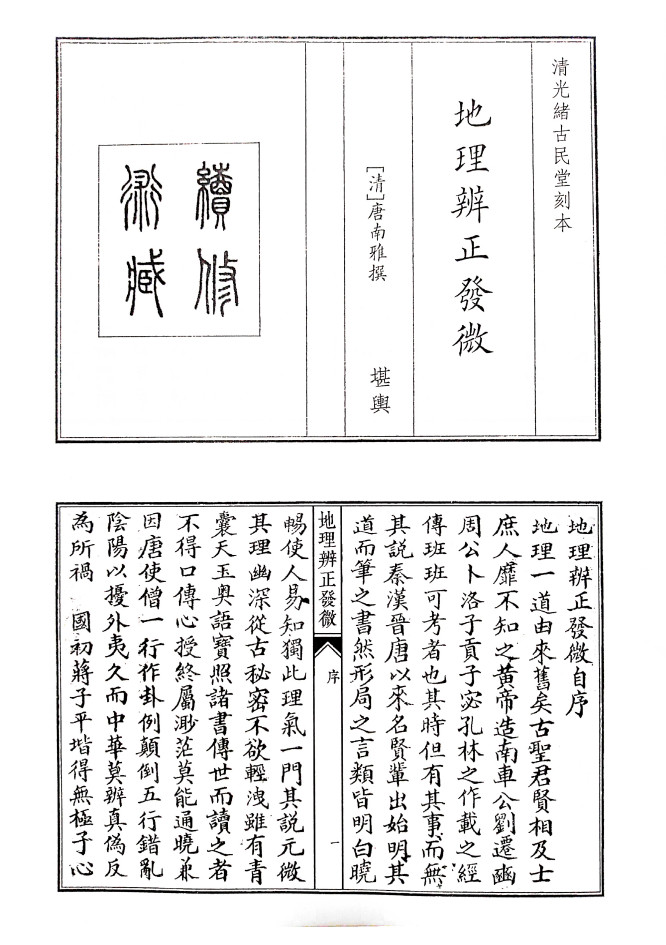 清光緒古民堂刻本
地理辨正發微
［清］唐南雅撰　堪輿
續修
術藏
地理辨正發微自序
地理一道由來舊矣古聖君賢相及士
庶人靡不知之黃帝造南車公劉遷豳
周公卜洛子貢子宓孔林之作載之經
傳班班可考者也其時但有其事而無
其說秦漢晉唐以來名賢輩出始明其
道而筆之書然形局之言類皆明白曉
地理辨正發微
序
一
暢使人易知獨此理氣一門其說元微
其理幽深從古秘密不欲輕洩雖有青
囊天玉奧語寶照諸書傳世而讀之者
不得口傳心授終屬渺茫莫能通曉兼
因唐使僧一行作卦例顛倒五行錯亂
陰陽以擾外夷久而中華莫辨真偽反
為所禍　國初蔣子平堦得無極子心